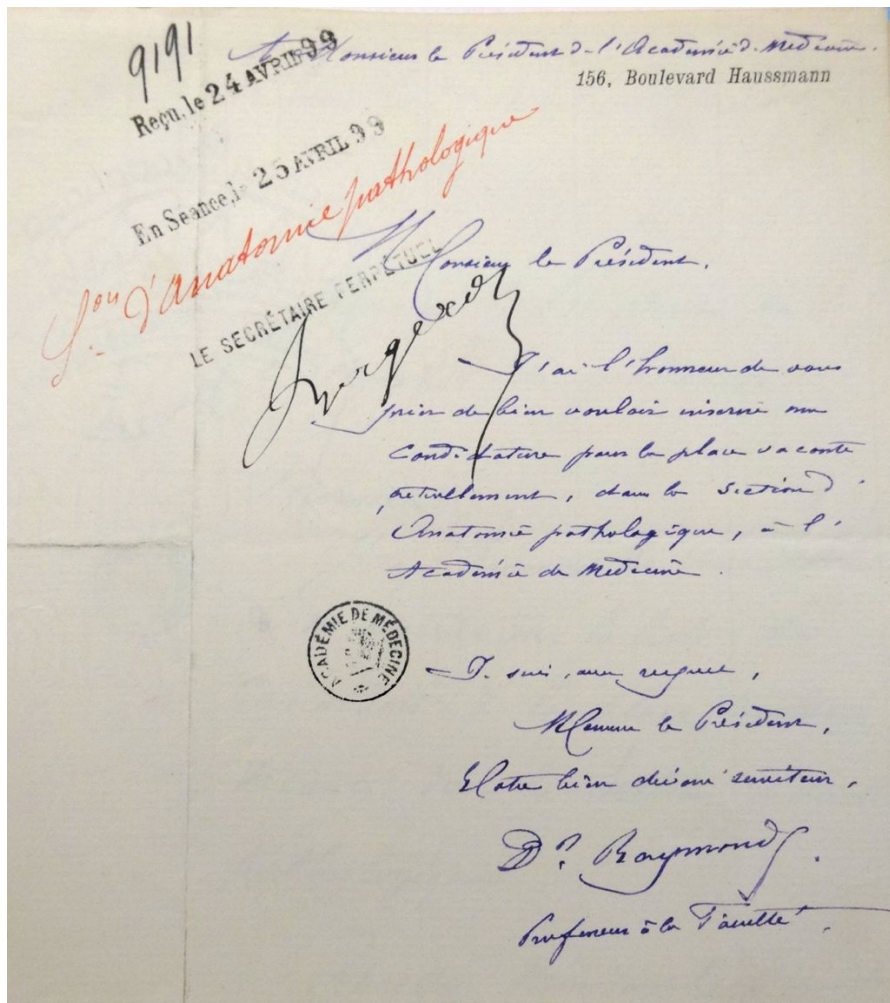 9191
A Monsieur le Président de l'Académie de Médecine.
156, Boulevard Haussmann
Reçu, le 24 AVRIL 99
En Séance, le 25 AVRIL 99
Son d'Anatomie pathologique
LE SECRÉTAIRE PERPÉTUEL
Monsieur le Président,
J'ai l'honneur de vous
prier de bien vouloir inscrire ma
Candidature pour la place vacante
actuellement, dans la section d'
Anatomie pathologique, à l'
Académie de Médecine.
ACADÉMIE DE MÉDECINE
Je suis, avec respect,
Monsieur le Président,
Votre bien dévoué serviteur,
Dr. Raymond.
Professeur à la Faculté.